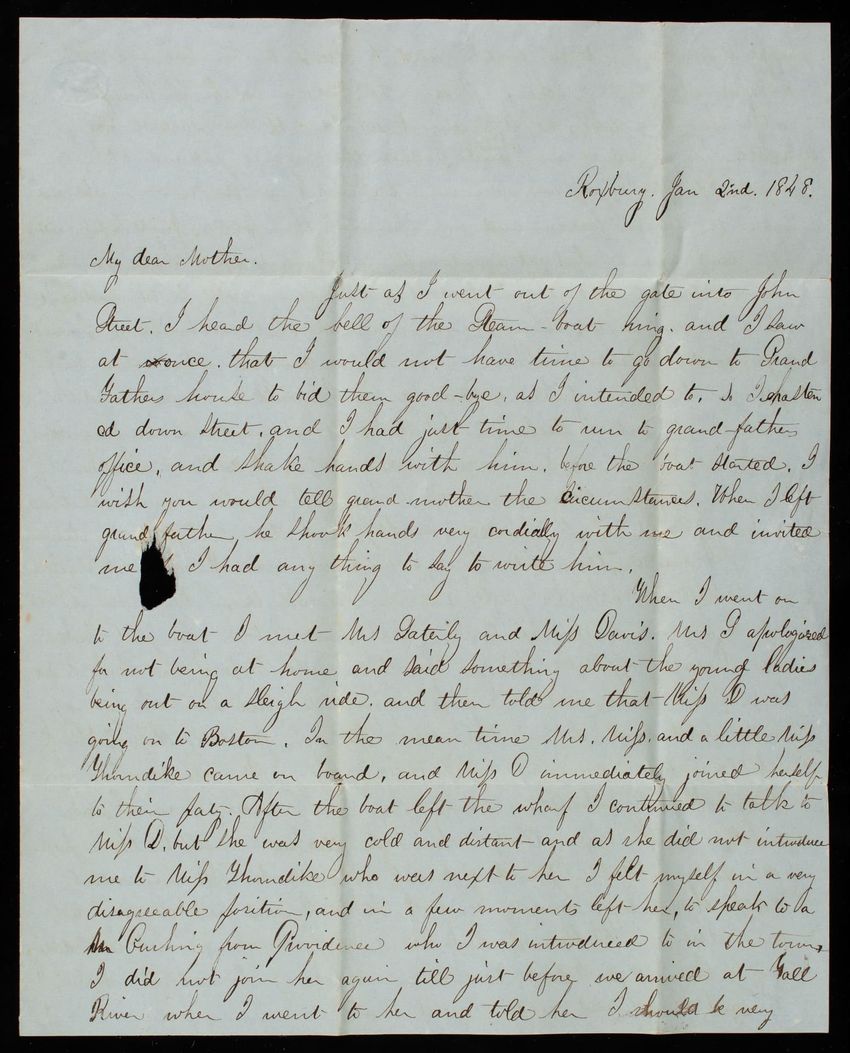 Roxbury. Jan 2nd. 1848.
My dear Mother.
Just as I went out of the gate into John
Street. I heard the bell of the Steam-boat ring. and I saw
at once. that I would not have time to go down to Grand
Fathers house to bid them good-bye, as I intended to, so I hasten
ed down street, and I had just time to run to grand-fathers
office, and shake hands with him, before the boat started. I
wish you would tell grand-mother the circumstances. When I left
grand father, he shook hands very cordially with me and invited
me I had any thing to say to write him.
When I went on
to the boat I met Mrs and Miss Davis. Mrs G apologized
for not being at home and said something about the young ladies
being out on a sleigh ride. and then told me that Miss D was
going on to Boston. In the mean time Mrs. Miss, and a little Miss
Thorndike came on board, and Miss D immediately joined herself
to their paty. After the boat left the wharf I continued to talk to
Miss D, but she was very cold and distant and as she did not introduce
me to Miss Thorndike who was next to her I felt myself in a very
disagreeable position, and in a few moments left her, to speak to a
Mr Cushing from Providence who I was introduced to in the town,
I did not join her again till just before we arrived at Fall
River when I went to her and told her I should be very